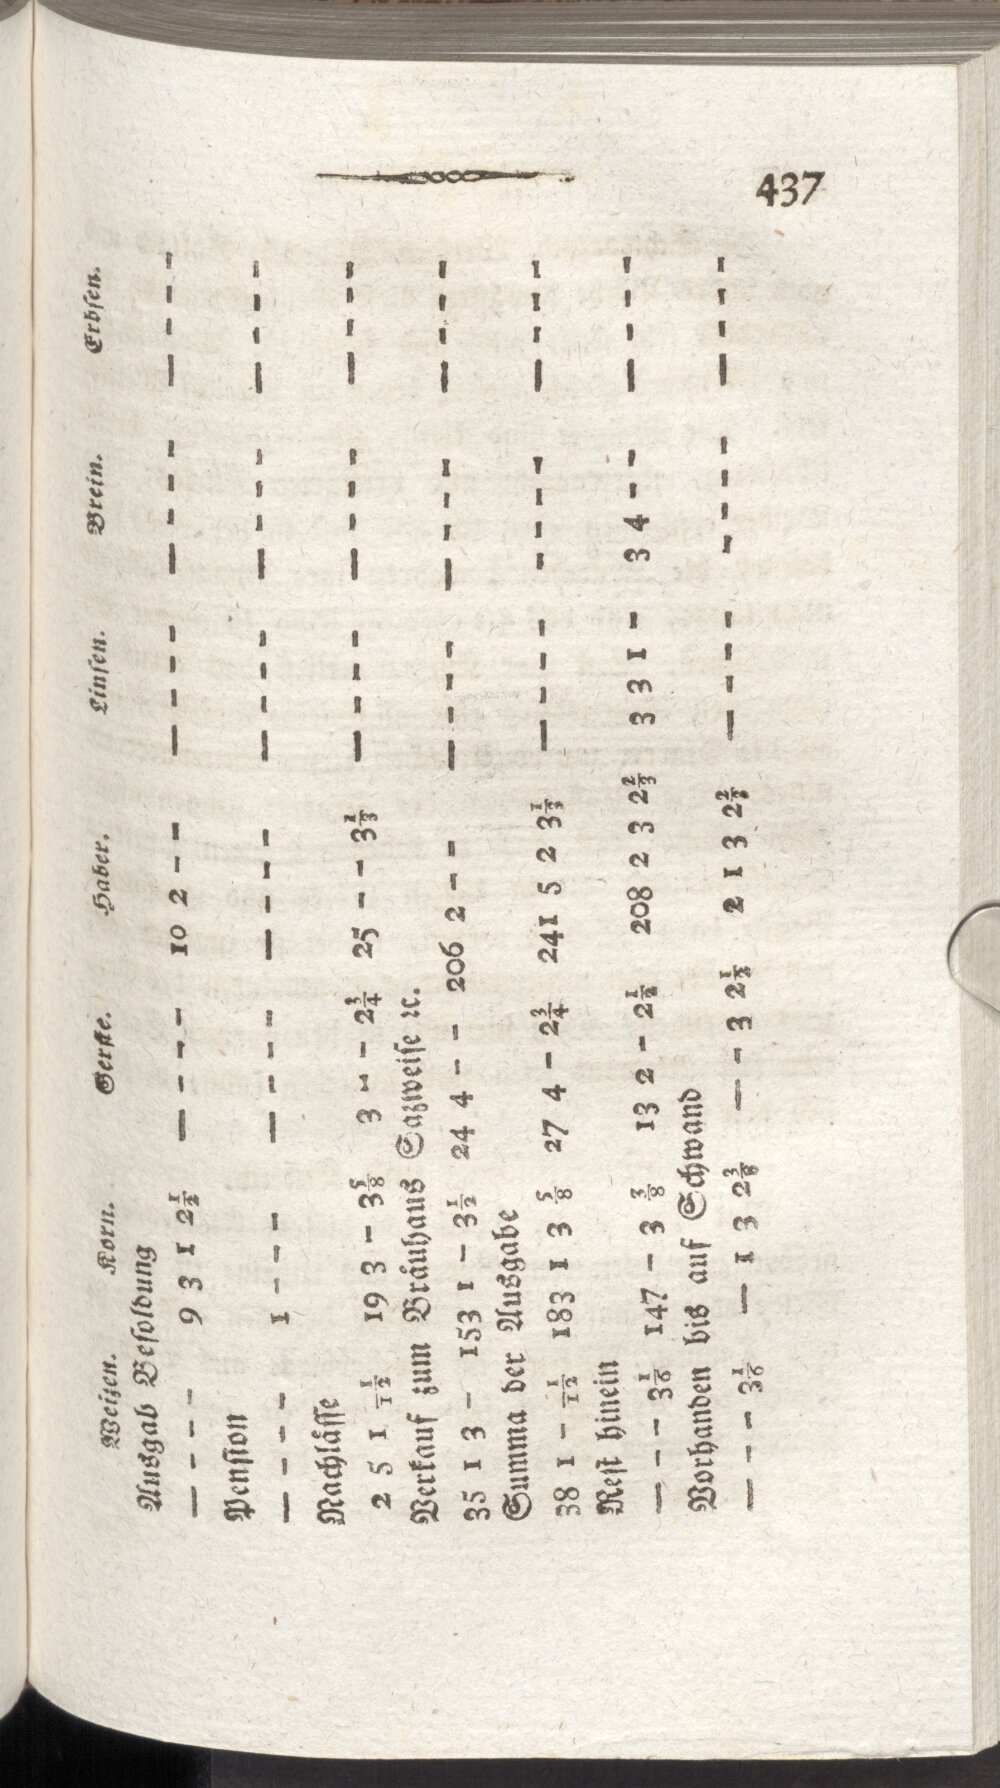 437
Weitzen. Korn. Gerste. Haber. Linsen. Brein. Erbsen.
Ausgab Besoldung
— - - - 9 3 1 2½ — - - - 10 2 - - — - - - — - - - — - - -
Pension
— - - - 1 - - - — - - - — - - - — - - - — - - - — - - -
Nachlässe
2 5 1 1/12 19 3 - 3⅝ 3 - - 2¾ 25 - - 3⅓ — - - - — - - - — - - -
Verkauf zum Bräuhaus Sazweise ꝛc.
35 1 3 - 153 1 - 3½ 24 4 - - 206 2 - - — - - - — - - - — - - -
Summa der Ausgabe
38 1 - 1/12 183 1 3 ⅝ 27 4 - 2¾ 241 5 2 3⅓ — - - - - - - - — - - -
Rest hinein
— - - 3⅙ 147 - 3 ⅜ 13 2 - 2½ 208 2 3 2⅔ 3 3 1 - 3 4 - - — - - -
Vorhanden bis auf Schwand
— - - 3⅙ — 1 3 2⅜ — - 3 2½ 2 1 3 2⅔ — - - - - - - - — - - -